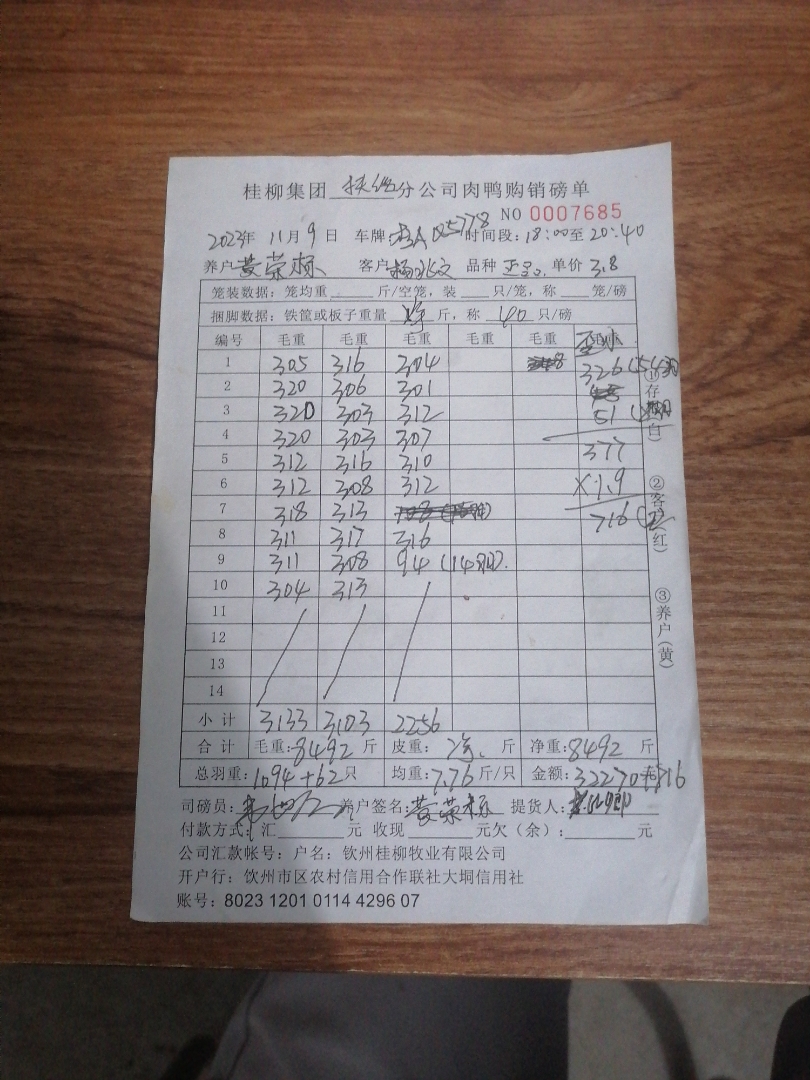 桂柳集团 分公司肉鸭购销磅单
NO 0007685
2023年 11月9日 车牌: 时间段:18:00至20:40
养户 黄荣标 客户 品种 单价 3.8
笼装数据:笼均重 斤/空笼,装 只/笼,称 笼/磅
捆脚数据:铁筐或板子重量 净 斤,称 40 只/磅
编号 毛重 毛重 毛重 毛重 毛重
1 305 316 304 326
2 320 306 301
3 320 303 312 51
4 320 303 307 377
5 312 316 310
6 312 308 312 ×1.9
7 318 313 716
8 311 317 316
9 311 308 94 (14只).
10 304 313
11
12
13
14
小计 3133 3103 2256
合计 毛重:8492 斤 皮重: 净 斤 净重:8492 斤
总羽重:1094+62只 均重:7.76斤/只 金额:32270元+716
司磅员: 养户签名:黄荣标 提货人:
付款方式:汇 元 收现 元欠(余): 元
公司汇款帐号:户名:钦州桂柳牧业有限公司
开户行:钦州市区农村信用合作联社大垌信用社
账号:8023 1201 0114 4296 07
①存(白)
②客(红)
③养户(黄)